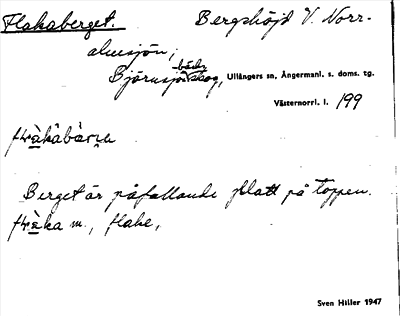 Flakaberget. Bergshöjd V. Norr-
almsjön,
både
Björnsjö skog, Ullångers sn, Ångermanl. s. doms. tg.
Västernorrl. l. 199
Berget är påfallande flatt på toppen.
m., flake,
Sven Hiller 1947